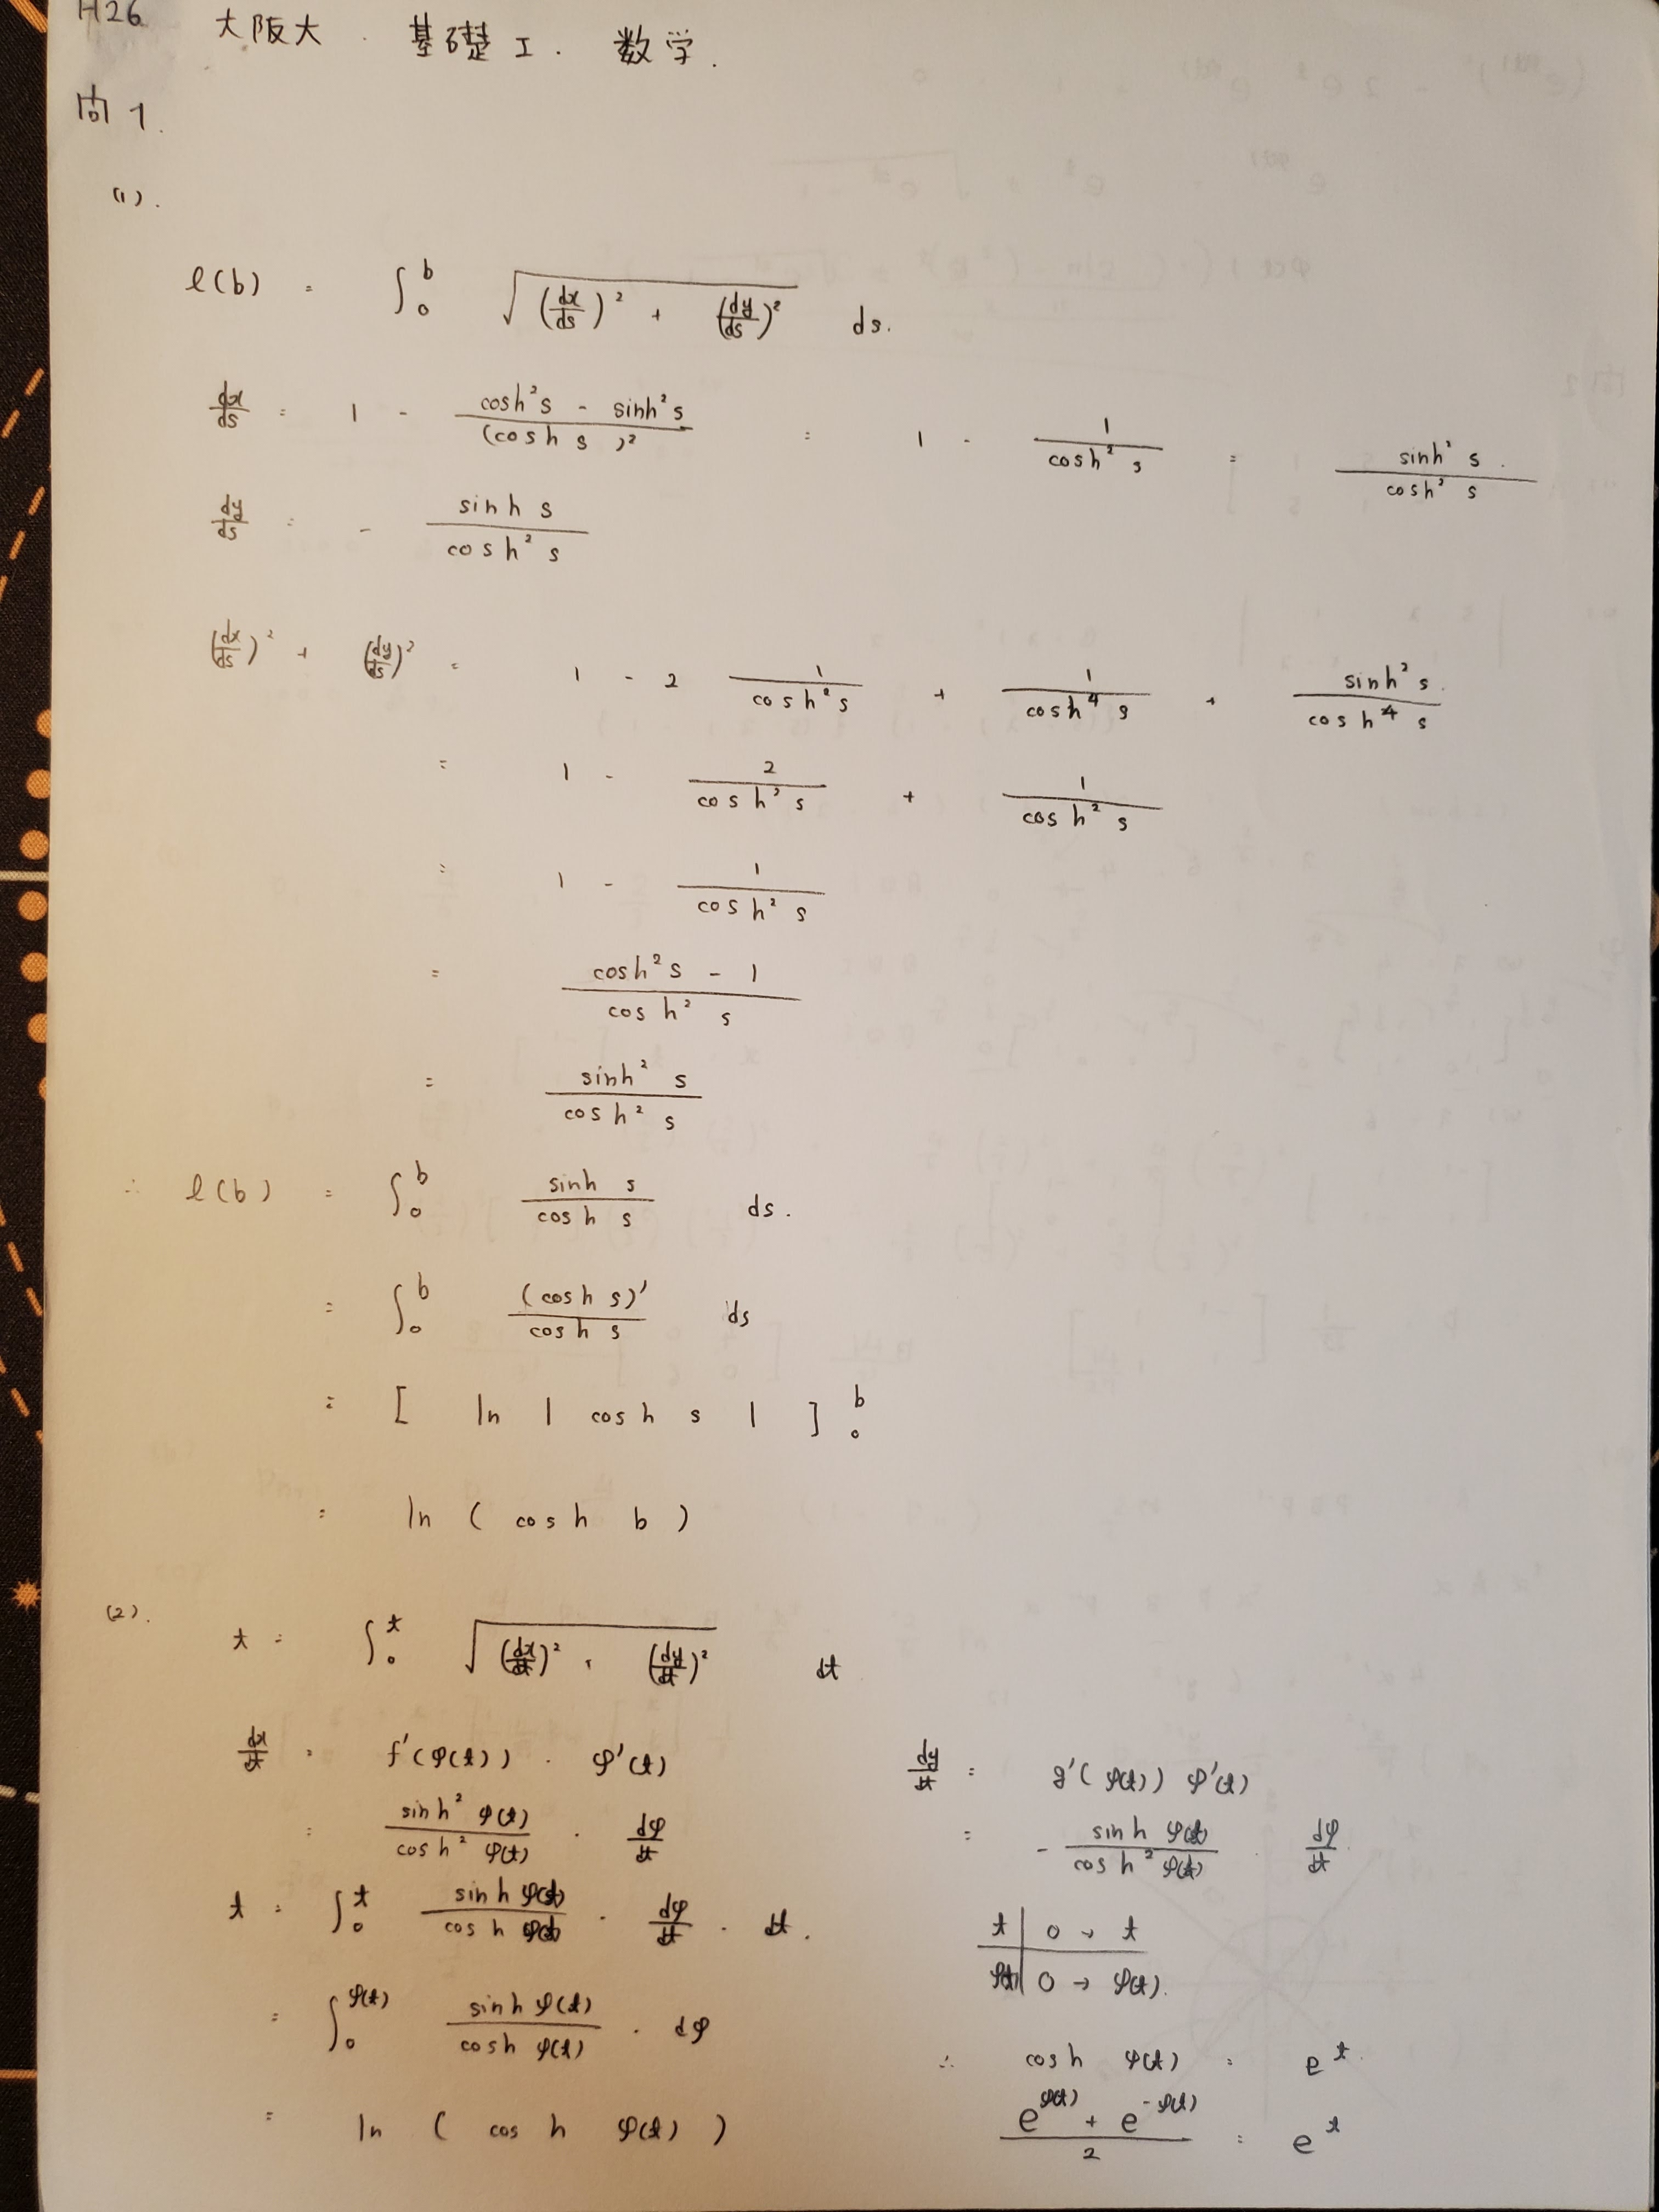 H26 大阪大 . 基礎工 . 数学 .
問1.
(1).
l(b) = ∫₀ᵇ √((dx/ds)² + (dy/ds)²) ds.
dx/ds = 1 - (cosh²s - sinh²s)/(cosh s)² = 1 - 1/cosh² s = sinh² s/cosh² s
dy/ds = - sinh s/cosh² s
(dx/ds)² + (dy/ds)² = 1 - 2 1/cosh² s + 1/cosh⁴ s + sinh² s/cosh⁴ s
= 1 - 2/cosh² s + 1/cosh² s
= 1 - 1/cosh² s
= (cosh² s - 1)/cosh² s
= sinh² s/cosh² s
∴ l(b) = ∫₀ᵇ sinh s/cosh s ds.
= ∫₀ᵇ (cosh s)'/cosh s ds
= [ ln | cosh s | ]₀ᵇ
= ln ( cosh b )
(2).
t = ∫₀ᵗ √((dx/dt)² + (dy/dt)²) dt
dx/dt = f'(φ(t)) · φ'(t) dy/dt = g'(φ(t)) φ'(t)
= sinh² φ(t)/cosh² φ(t) · dφ/dt = - sinh φ(t)/cosh² φ(t) · dφ/dt
t = ∫₀ᵗ sinh φ(t)/cosh φ(t) · dφ/dt · dt. t | 0 → t
φ(t) | 0 → φ(t).
= ∫₀^φ(t) sinh φ(t)/cosh φ(t) · dφ
∴ cosh φ(t) = eᵗ.
= ln ( cosh φ(t) ) (e^φ(t) + e^-φ(t))/2 = eᵗ